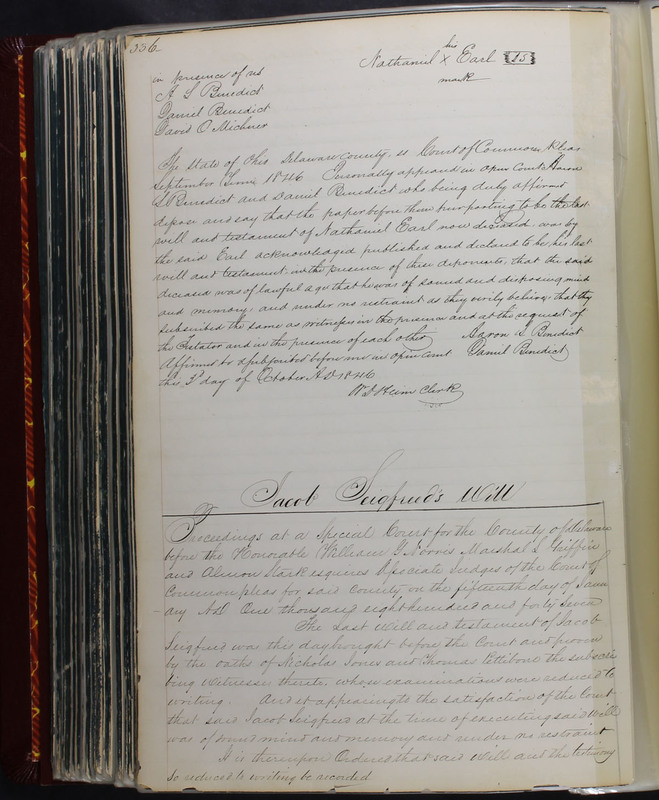 336
Nathaniel his X mark Earl LS
in presence of us
A S Benedict
Daniel Benedict
David O Michner
The State of Ohio Delaware County, ss Court of Common Pleas
September Term 1846 Personally appeared in open Court Aaron
S Benedict and Daniel Benedict who being duly affirmed
depose and say that the paper before them purporting to be the last
will and testament of Nathaniel Earl now deceased was by
the said Earl acknowledged published and declared to be his last
will and testament in the presence of these deponents, that the said
deceased was of lawful age that he was of sound and disposing mind
and memory, and under no restraint as they verily believe, that they
subscribed the same as witnesses in the presence and at the request of
the Testator and in the presence of each other Aaron S Benedict
Affirmed to & subscribed before me in open Court Daniel Benedict
this day of October AD 1846
Clerk
Jacob Seigfried's Will
Proceedings at a Special Court for the County of Delaware
before the Honorable William G Norris Marshal L Griffin
and Almon Stark esquires Associate Judges of the Court of
Common pleas for said County on the fifteenth day of Janu
ary AD One thousand eight hundred and forty Seven
The Last will and testament of Jacob
Seigfried was this day brought before the Court and proven
by the oaths of Nicholas Jones and Thomas Pettibone the subscri
bing witnesses thereto, whose examinations were reduced to
writing. And it appearing to the satisfaction of the Court
that said Jacob Seigfried at the time of executing said Will
was of sound mind and memory and under no restraint
It is thereupon Ordered that said Will and the testimony
so reduced to writing be recorded